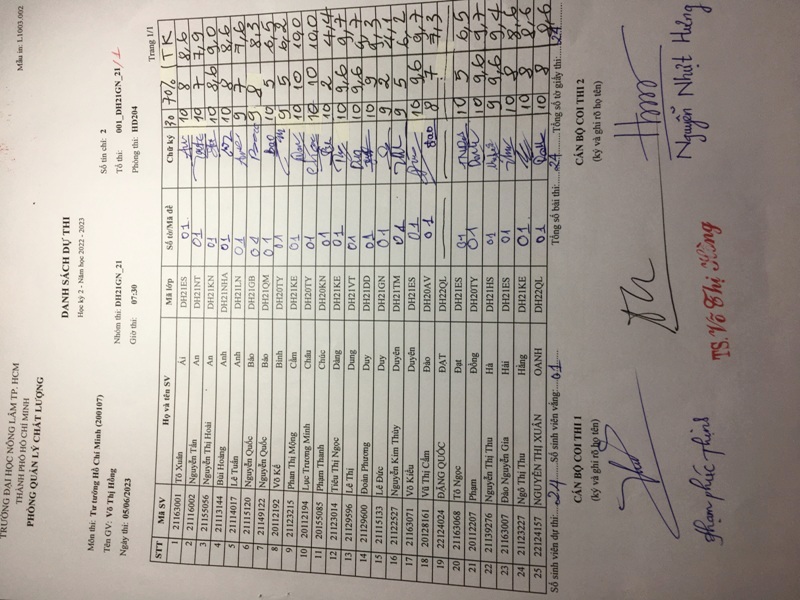 TRƯỜNG ĐẠI HỌC NÔNG LÂM TP. HCM
THÀNH PHỐ HỒ CHÍ MINH
PHÒNG QUẢN LÝ CHẤT LƯỢNG
Mẫu in: L1003.002
DANH SÁCH DỰ THI
Học kỳ 2 - Năm học 2022 - 2023
Trang 1/1
Môn thi: Tư tưởng Hồ Chí Minh (200107) Số tín chỉ: 2
Tên GV: Võ Thị Hồng Nhóm thi: DH21GN_21 Tổ thi: 001_DH21GN_21/1
Ngày thi: 05/06/2023 Giờ thi: 07:30 Phòng thi: HD204
STT Mã SV Họ và tên SV Mã lớp Số tờ/Mã đề Chữ ký 30 70% TK
1 21163001 Tô Xuân Ái DH21ES 01 10 8 8,6
2 21116002 Nguyễn Tấn An DH21NT 01 10 7 7,9
3 21155056 Nguyễn Thị Hoài An DH21KN 01
4 21113144 Bùi Hoàng Anh DH21NHA 01 10 8 8,6
5 21114017 Lê Tuấn Anh DH21LN 01 9 7 7,6
6 21115120 Nguyễn Quốc Bảo DH21GB 01 9 8 8,3
7 21149122 Nguyễn Quốc Bảo DH21QM 01 10 5 6,5
8 20112192 Võ Kế Bình DH20TY 01 9 5 6,2
9 21123215 Phạm Thị Mộng Cầm DH21KE 01 10 10 10,0
10 20112194 Lục Trương Minh Châu DH20TY 01 10 10 10,0
11 20155085 Phạm Thanh Chúc DH20KN 01 10 2 4,4
12 21123014 Tiêu Thị Ngọc Dàng DH21KE 01 10 9,6 9,7
13 21129596 Lê Thị Dung DH21VT 01 10 9,6 9,7
14 21129600 Đoàn Phương Duy DH21DD 01 10 9 9,3
15 21115133 Lê Đức Duy DH21GN 01 9 2 4,1
16 21122527 Nguyễn Kim Thúy Duyên DH21TM 01 9 5 6,2
17 21163071 Võ Kiều Duyên DH21ES 01 10 9,6 9,7
18 20128161 Vũ Thị Cẩm Đào DH20AV 01 Đào 8 7 7,3
19 22124024 ĐẶNG QUỐC ĐẠT DH22QL
20 21163068 Tô Ngọc Đạt DH21ES 01 10 5 6,5
21 20112207 Phạm Đông DH20TY 01 10 9,6 9,7
22 21139276 Nguyễn Thị Thu Hà DH21HS 01 9 9,6 9,4
23 21163007 Đào Nguyễn Gia Hải DH21ES 01 10 8 8,6
24 21123227 Ngô Thị Thu Hằng DH21KE 01 10 8 8,6
25 22124157 NGUYỄN THỊ XUÂN OANH DH22QL 01 10 8 8,6
Số sinh viên dự thi: 24 Số sinh viên vắng: 01 Tổng số bài thi: 24 Tổng số tờ giấy thi: 24
CÁN BỘ COI THI 1 CÁN BỘ COI THI 2
(ký và ghi rõ họ tên) (ký và ghi rõ họ tên)
Phạm Phúc Thịnh TS. Võ Thị Hồng Nguyễn Nhựt Hưng